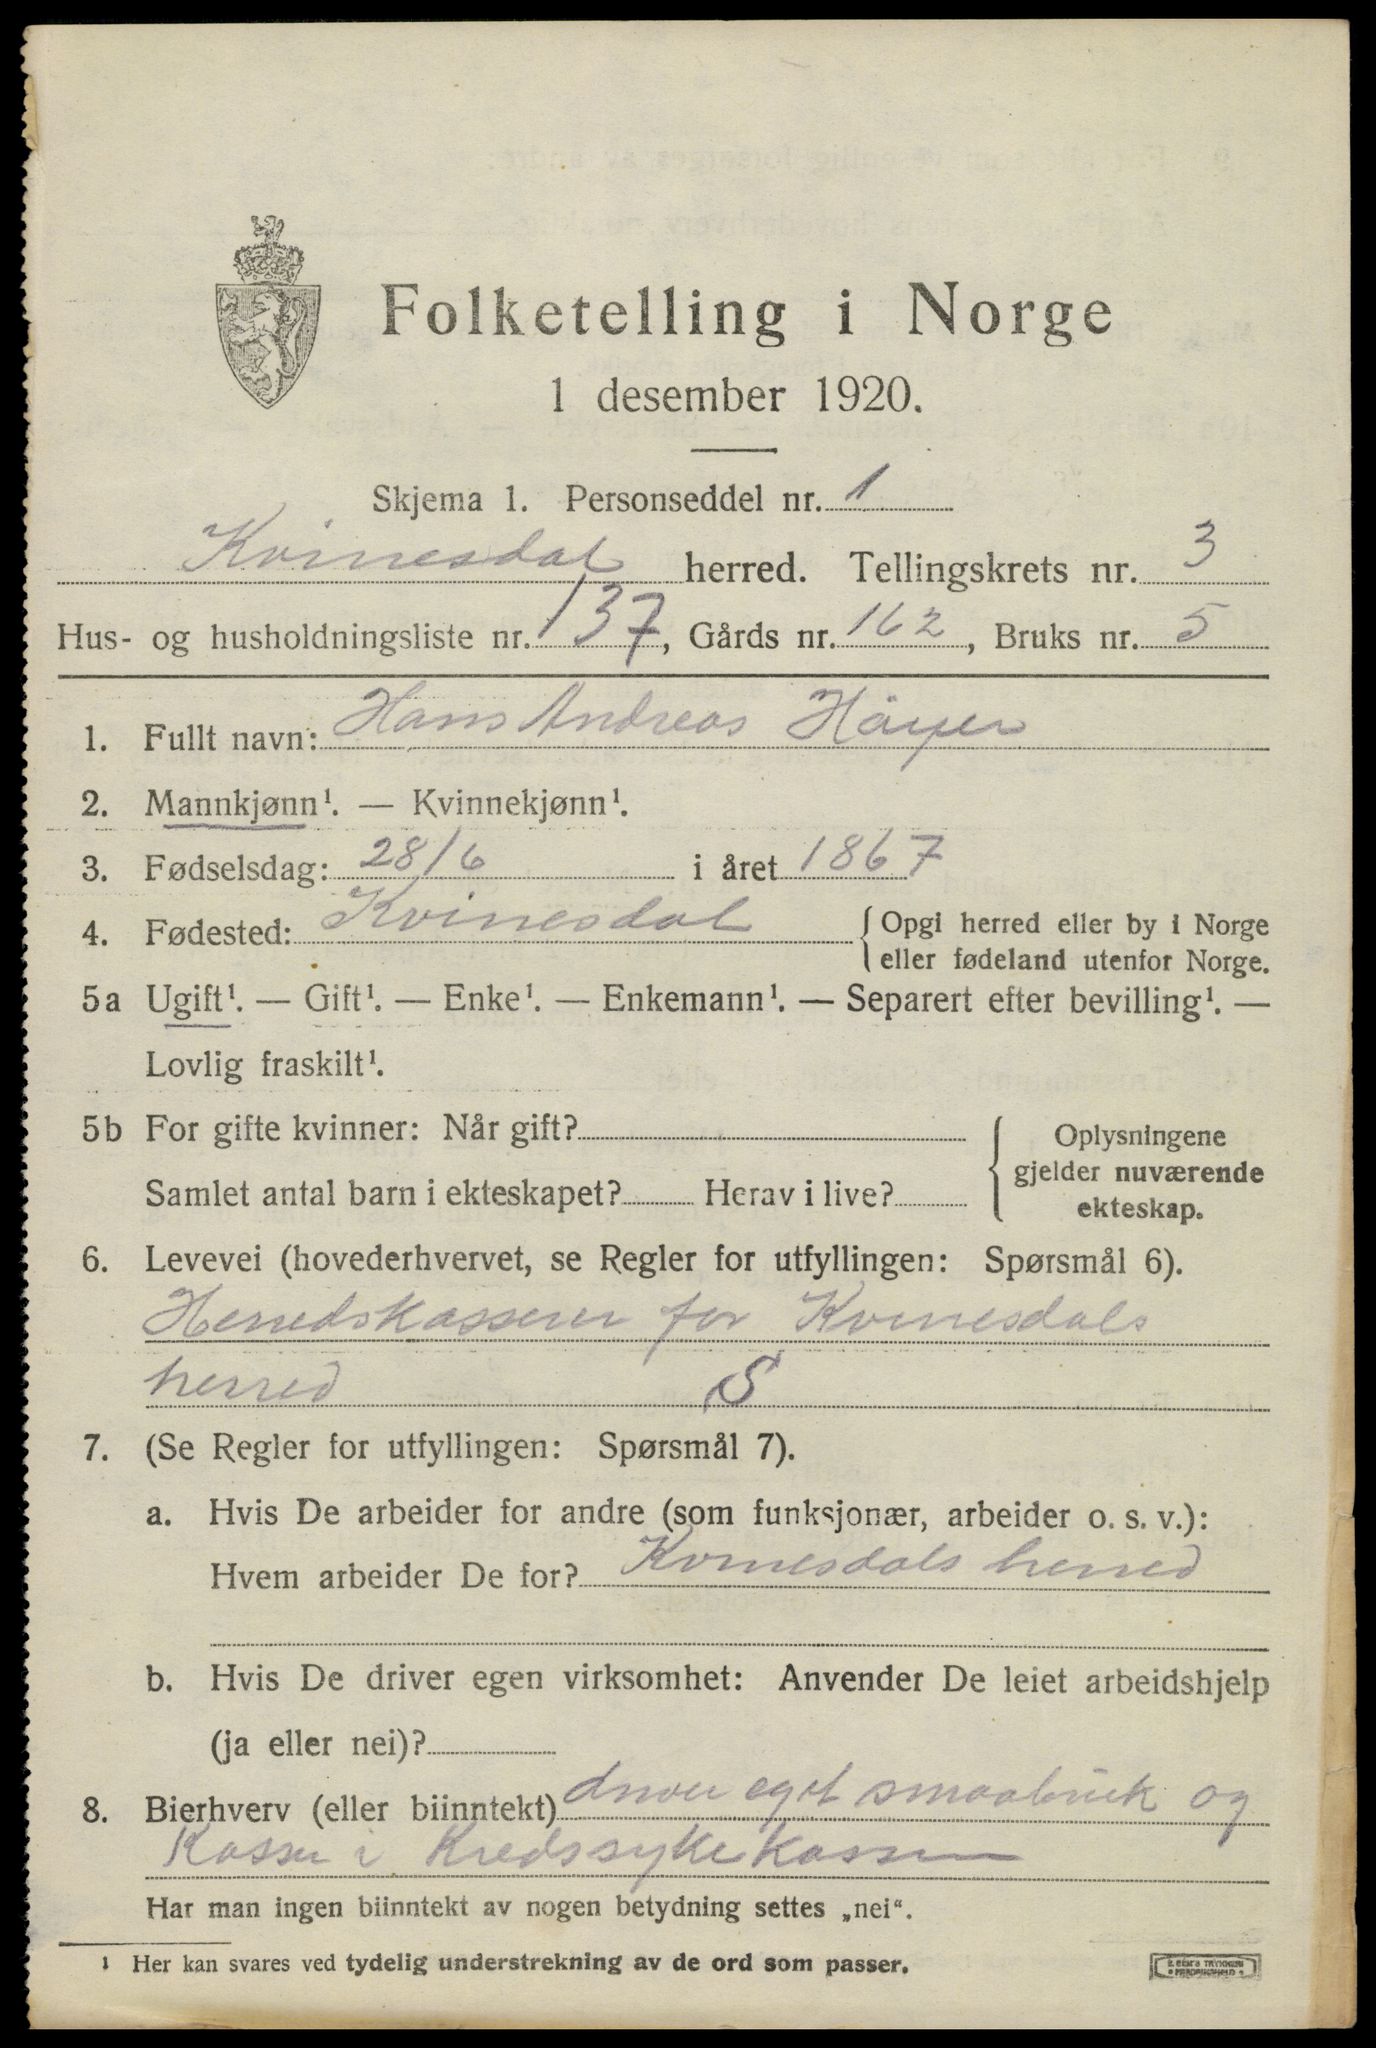 Folketelling i Norge
1 desember 1920.
Skjema 1. Personseddel nr. 1
Kvinesdal herred. Tellingskrets nr. 3
Hus- og husholdningsliste nr. 137, Gårds nr. 162, Bruks nr. 5
1. Fullt navn: Hans Andreas Høyer
2. Mannkjønn¹. — Kvinnekjønn¹.
3. Fødselsdag: 28/6 i året 1867
4. Fødested: Kvinesdal { Opgi herred eller by i Norge
eller fødeland utenfor Norge.
5a Ugift¹. — Gift¹. — Enke¹. — Enkemann¹. — Separert efter bevilling¹. —
Lovlig fraskilt¹.
5b For gifte kvinner: Når gift?
Samlet antal barn i ekteskapet? Herav i live?
{ Oplysningene
gjelder nuværende
ekteskap.
6. Levevei (hovederhvervet, se Regler for utfyllingen: Spørsmål 6).
Herredskasserer for Kvinesdals
herred S
7. (Se Regler for utfyllingen: Spørsmål 7).
a. Hvis De arbeider for andre (som funksjonær, arbeider o. s. v.):
Hvem arbeider De for? Kvinesdals herred
b. Hvis De driver egen virksomhet: Anvender De leiet arbeidshjelp
(ja eller nei)?
8. Bierhverv (eller biinntekt) driver eget smaabruk og
Kasser i Kredssykekassen
Har man ingen biinntekt av nogen betydning settes „nei“.
¹ Her kan svares ved tydelig understrekning av de ord som passer.